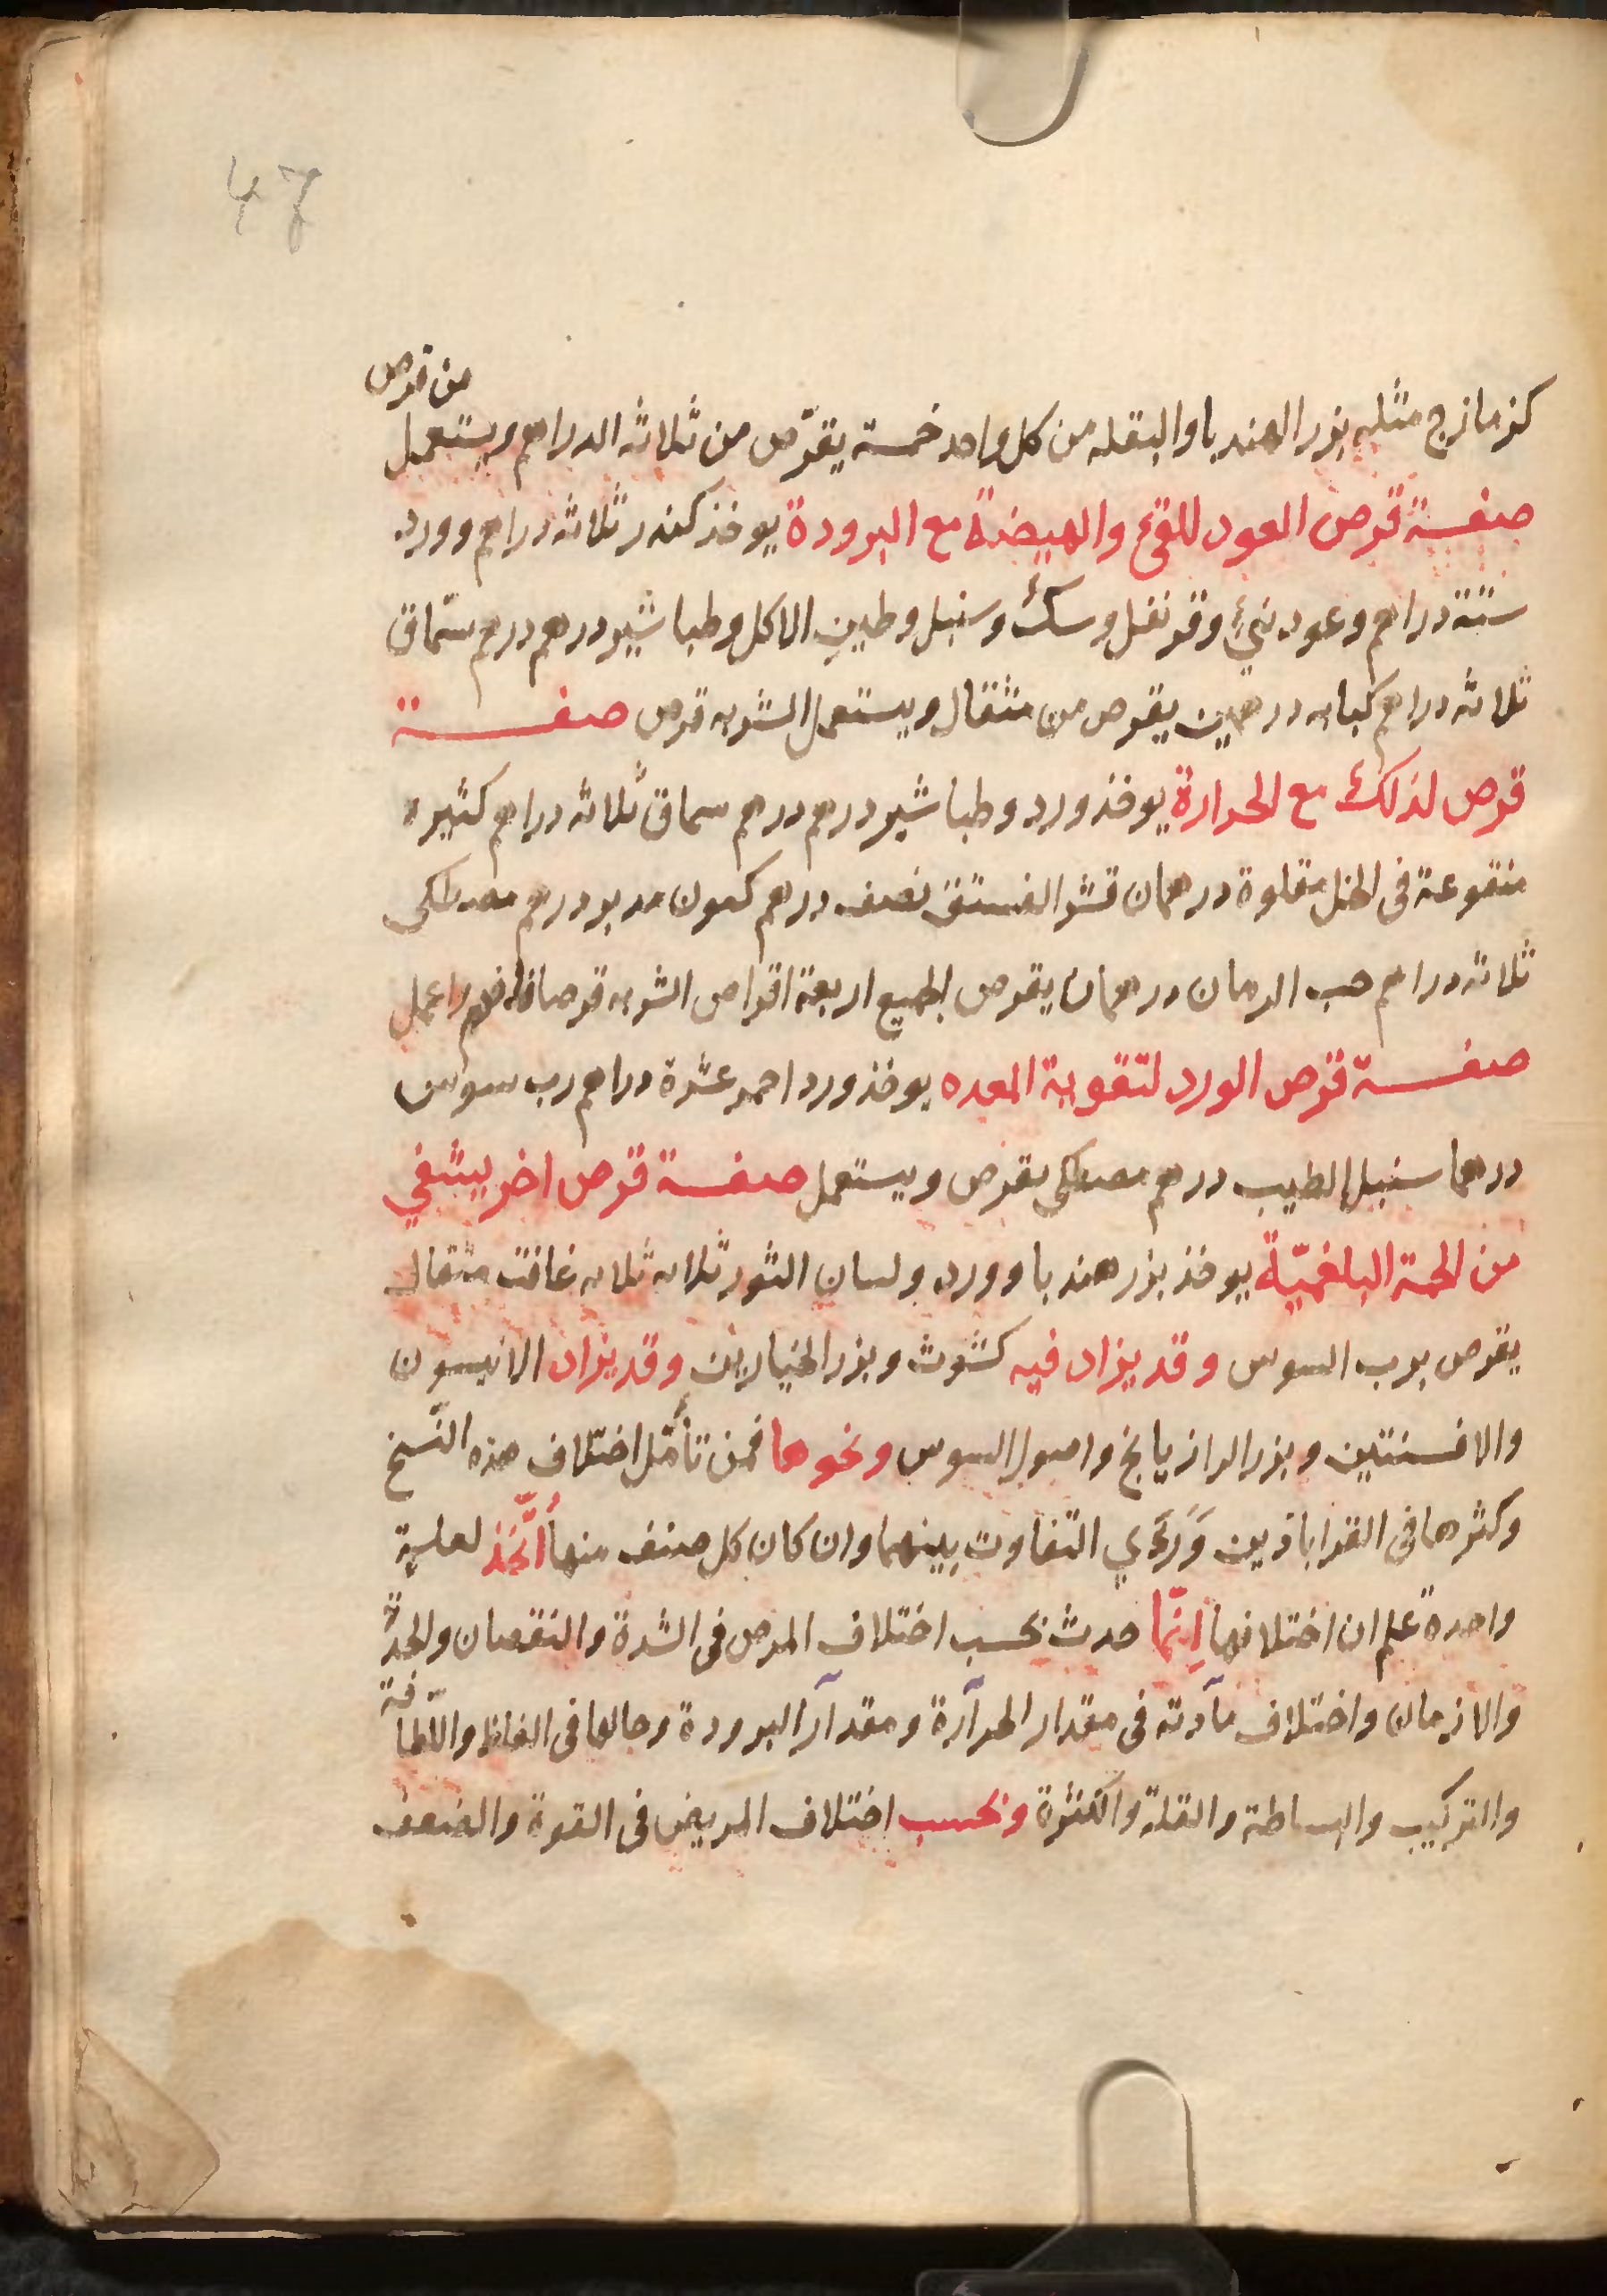 47
كزمازج مثله بزر الهندبا والبقله من كل واحد خمسة يقرّص من ثلاثة الدراهم ويستعمل
من قرص
صفة قرص العود للقئ والهيضة مع البرودة يوخذ كندر ثلاثه دراهم وورد
ستة دراهم وعود نيّئ وقرنفل وسك وسنبل وطين الاكل وطباشير درهم درهم سمّاق
ثلاثه دراهم كبابه درهمين يقرص من مثقال ويستعمل الشربه قرص صفة
قرص لذلك مع الحرارة يوخذ ورد وطباشير درهم درهم سماق ثلاثه دراهم كثيره
منقوعة فى الخل مقلوة درهمان قشر الفستق نصف درهم كمون مدبر درهم مصطكى
ثلاثه دراهم حب الرمان درهمان يقرص الجميع اربعة اقراص الشربه قرصا فافهم واعمل
صفة قرص الورد لتقوية المعده يوخذ ورد احمر عشرة دراهم رب سوس
درهما سنبل الطيب درهم مصطكى يقرص ويستعمل صفة قرص اخر يشفي
من الحمة البلغميّة يوخذ بزر هندبا وورد ولسان الثور ثلاثه ثلاثه غافت مثقال
يقرص برب السوس وقد يزاد فيه كشوث وبزر الخيارين وقد يزاد الانيسون
والافسنتين وبزر الرازيانج واصول السوس ونحوها فمن تأمّل اختلاف هذه النّسخ
وكثرها فى القراباذين وَرَىَ التفاوت بينهما وان كان كل صنف منها اُتّخذ لعلية
واحدة علم ان اختلافها اِنّما حدث بحسب اختلاف المرض فى الشدة والنقصان والحدّة
والازمان واختلاف مآدته فى مقدار الحرآرة ومقدآر البرودة وحالها فى الغلظ واللّطافة
والتركيب والبساطة والقلة والكثرة وبحسب اختلاف المريض فى القوة والضعف